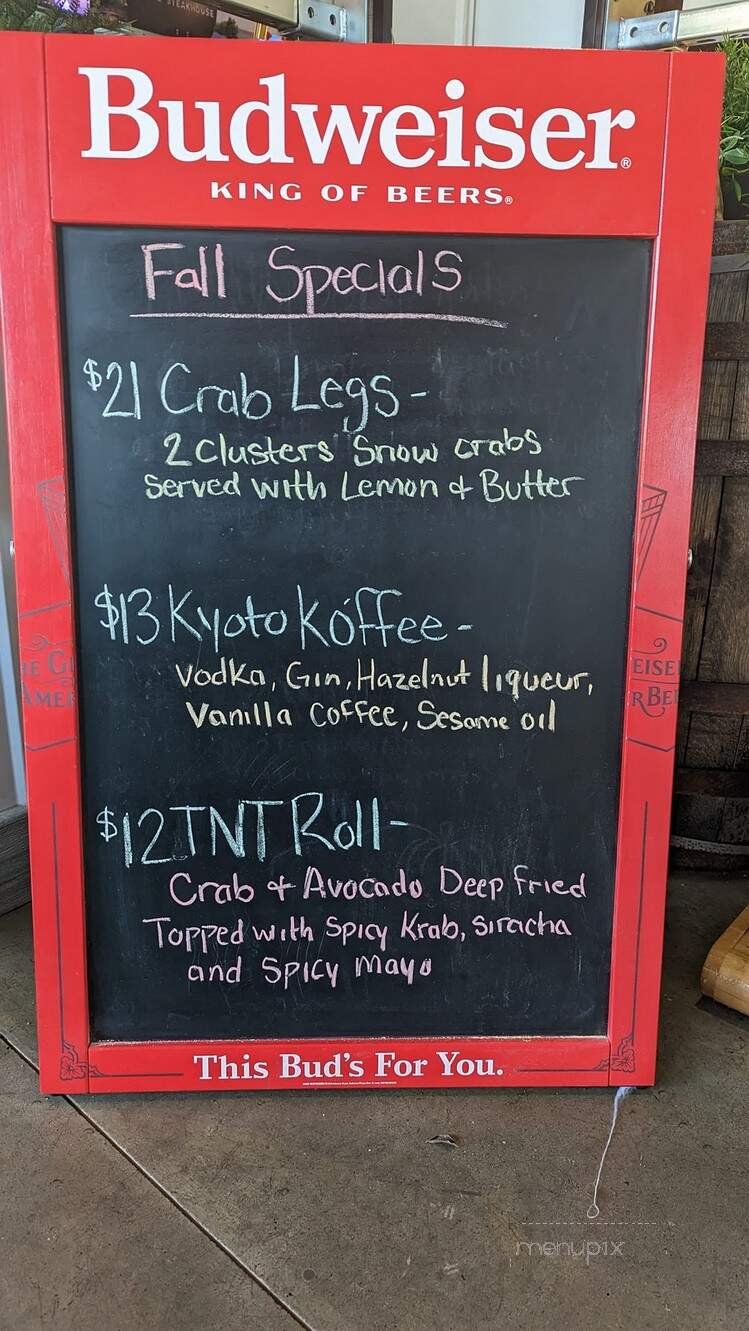 STEAKHOUSE
Budweiser®
KING OF BEERS®
Fall Specials
$21 Crab Legs -
2 Clusters Snow crabs
served with Lemon & Butter
$13 Kyoto Koffee -
Vodka, Gin, Hazelnut liqueur,
Vanilla Coffee, Sesame oil
$12 TNT Roll -
Crab & Avocado Deep fried
Topped with Spicy Krab, siracha
and Spicy mayo
This Bud's For You.
menupix